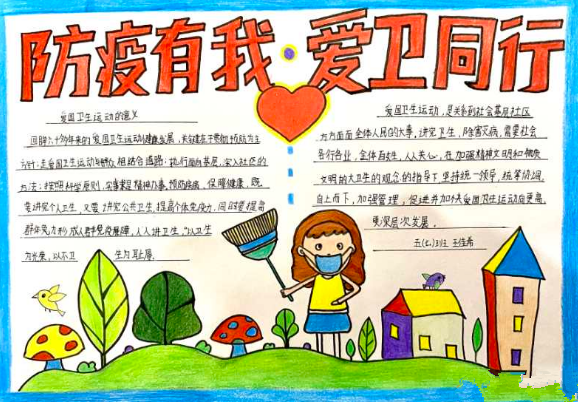 防疫有我·爱卫同行
爱国卫生运动的意义
回顾六十多年来的爱国卫生运动健康发展,关键在于贯彻预防为主
走爱国卫生运动与群众相结合道路;执行面向基层,深入社区的
方法;按照科学原则,实事求是精神办事,预防疾病,保障健康,既
要讲究个人卫生,又要讲究公共卫生,提高个体免疫力,同时要提高
群体免疫力形成人群免疫屏障,人人讲卫生,"以卫生
为光荣,以不卫 生为耻辱。
爱国卫生运动,是关系到社会基层社区
方方面面全体人民的大事,讲究卫生,除害灭病,需要社会
各行各业,全体,人人关心,在加强精神文明和物质
文明的大卫生的观念的指导下坚持统一领导,统筹协调,
自上而下,加强管理,促进并加快爱国卫生运动向更高,
更深层次发展。